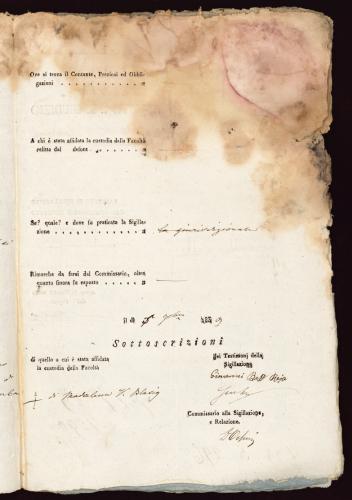 Ove si trova il Contante, Preziosi ed Obbli-
gazioni . . . . . . . . . . . . .
A chi è stata affidata la custodia della Facoltà
relitta dal defonto . . . . . . . . . .
Se? quale? e dove fu praticata la Sigilla-
zione . . . . . . . . . . . . .
la giurisdizionale
Rimarche da farsi dal Commissario, oltre
quanto finora fu esposto . . . . . . .
li
Sottoscrizioni
di quello a cui è stata affidata
la custodia della Facoltà
dei Testimoni della
Sigillazione
Giovanni Batt
+ di Madalena V. Blasig
Commissario alla Sigillazione,
e Relazione.